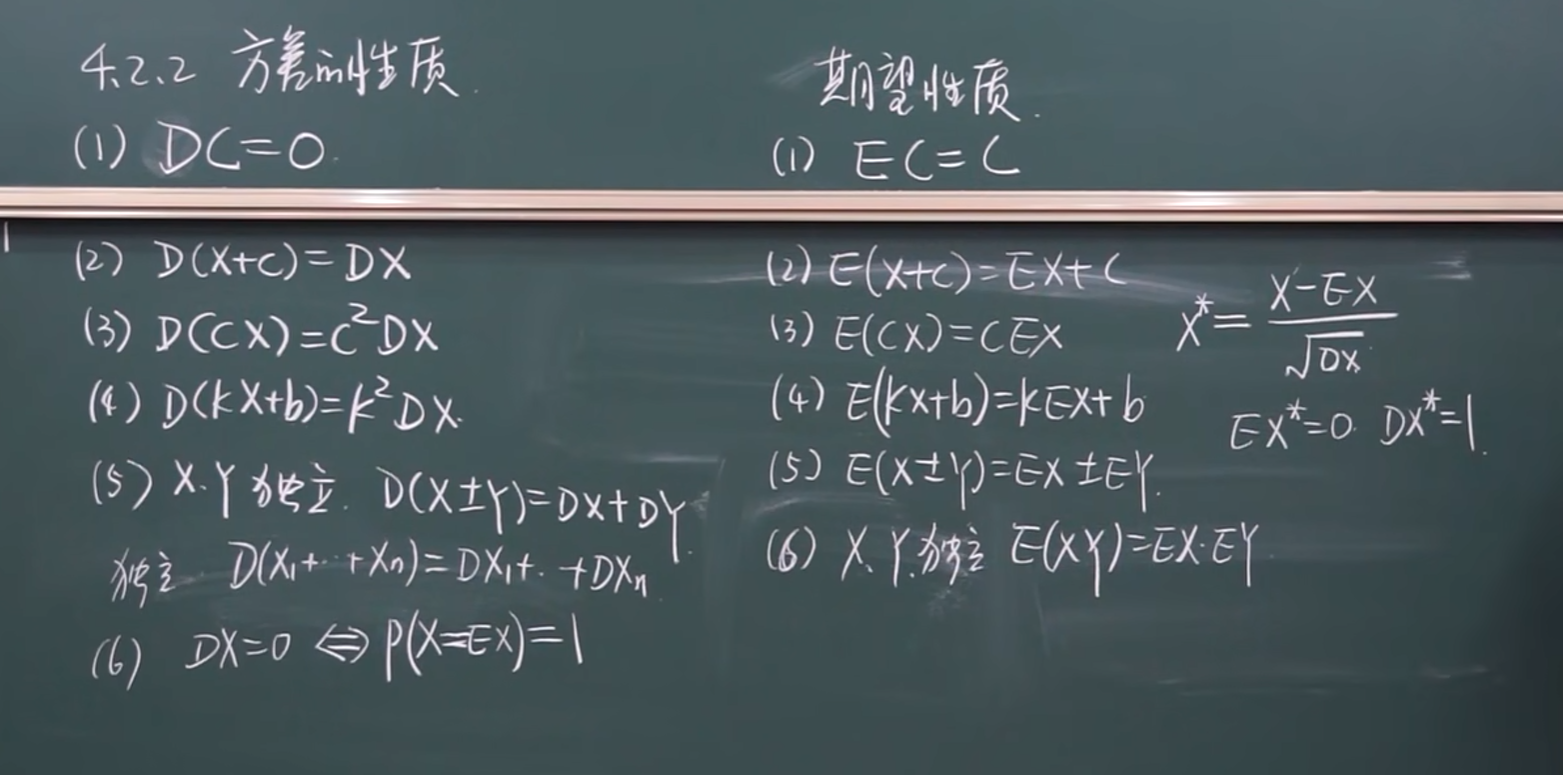 4.2.2 方差的性质.
(1) DC=0.
(2) D(X+C)=DX
(3) D(CX)=C²DX
(4) D(kX+b)=k²DX.
(5) X.Y独立. D(X±Y)=DX+DY.
独立 D(X₁+··+Xₙ)=DX₁+··+DXₙ.
(6) DX=0 ⇔ P(X=EX)=1
期望性质.
(1) EC=C
(2) E(X+C)=EX+C
(3) E(CX)=CEX
(4) E(kX+b)=kEX+b
(5) E(X±Y)=EX±EY.
(6) X.Y.独立 E(XY)=EX·EY.
X*= (X-EX)/√DX
EX*=0. DX*=1.